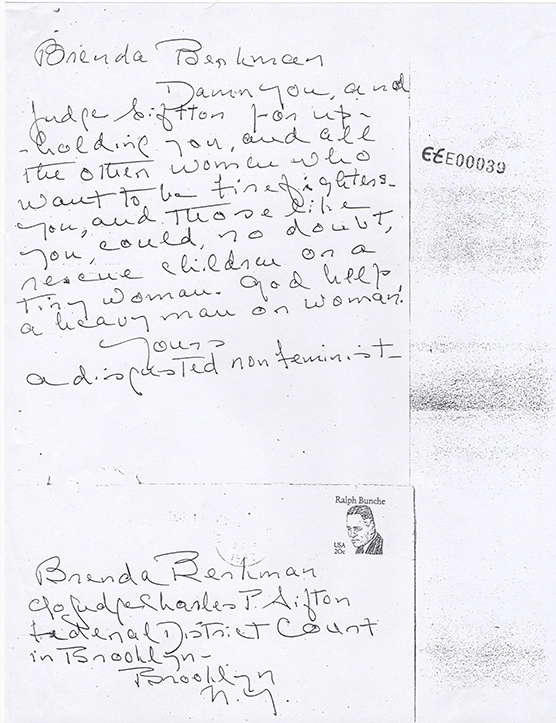 Brenda Berkman
Damn you, and
Judge Siftton for up-
-holding you, and all
the other women who
want to be firefighters-
you, and those like
you, could, no doubt,
rescue children or a
tiny woman. God help,
a heavy man or woman.
Yours
a disgusted non feminist-
EEE00039
Ralph Bunche
USA
20c
Brenda Berkman
c/o Judge Charles P. Sifton
Federal District Court
in Brooklyn-
Brooklyn
N.Y.